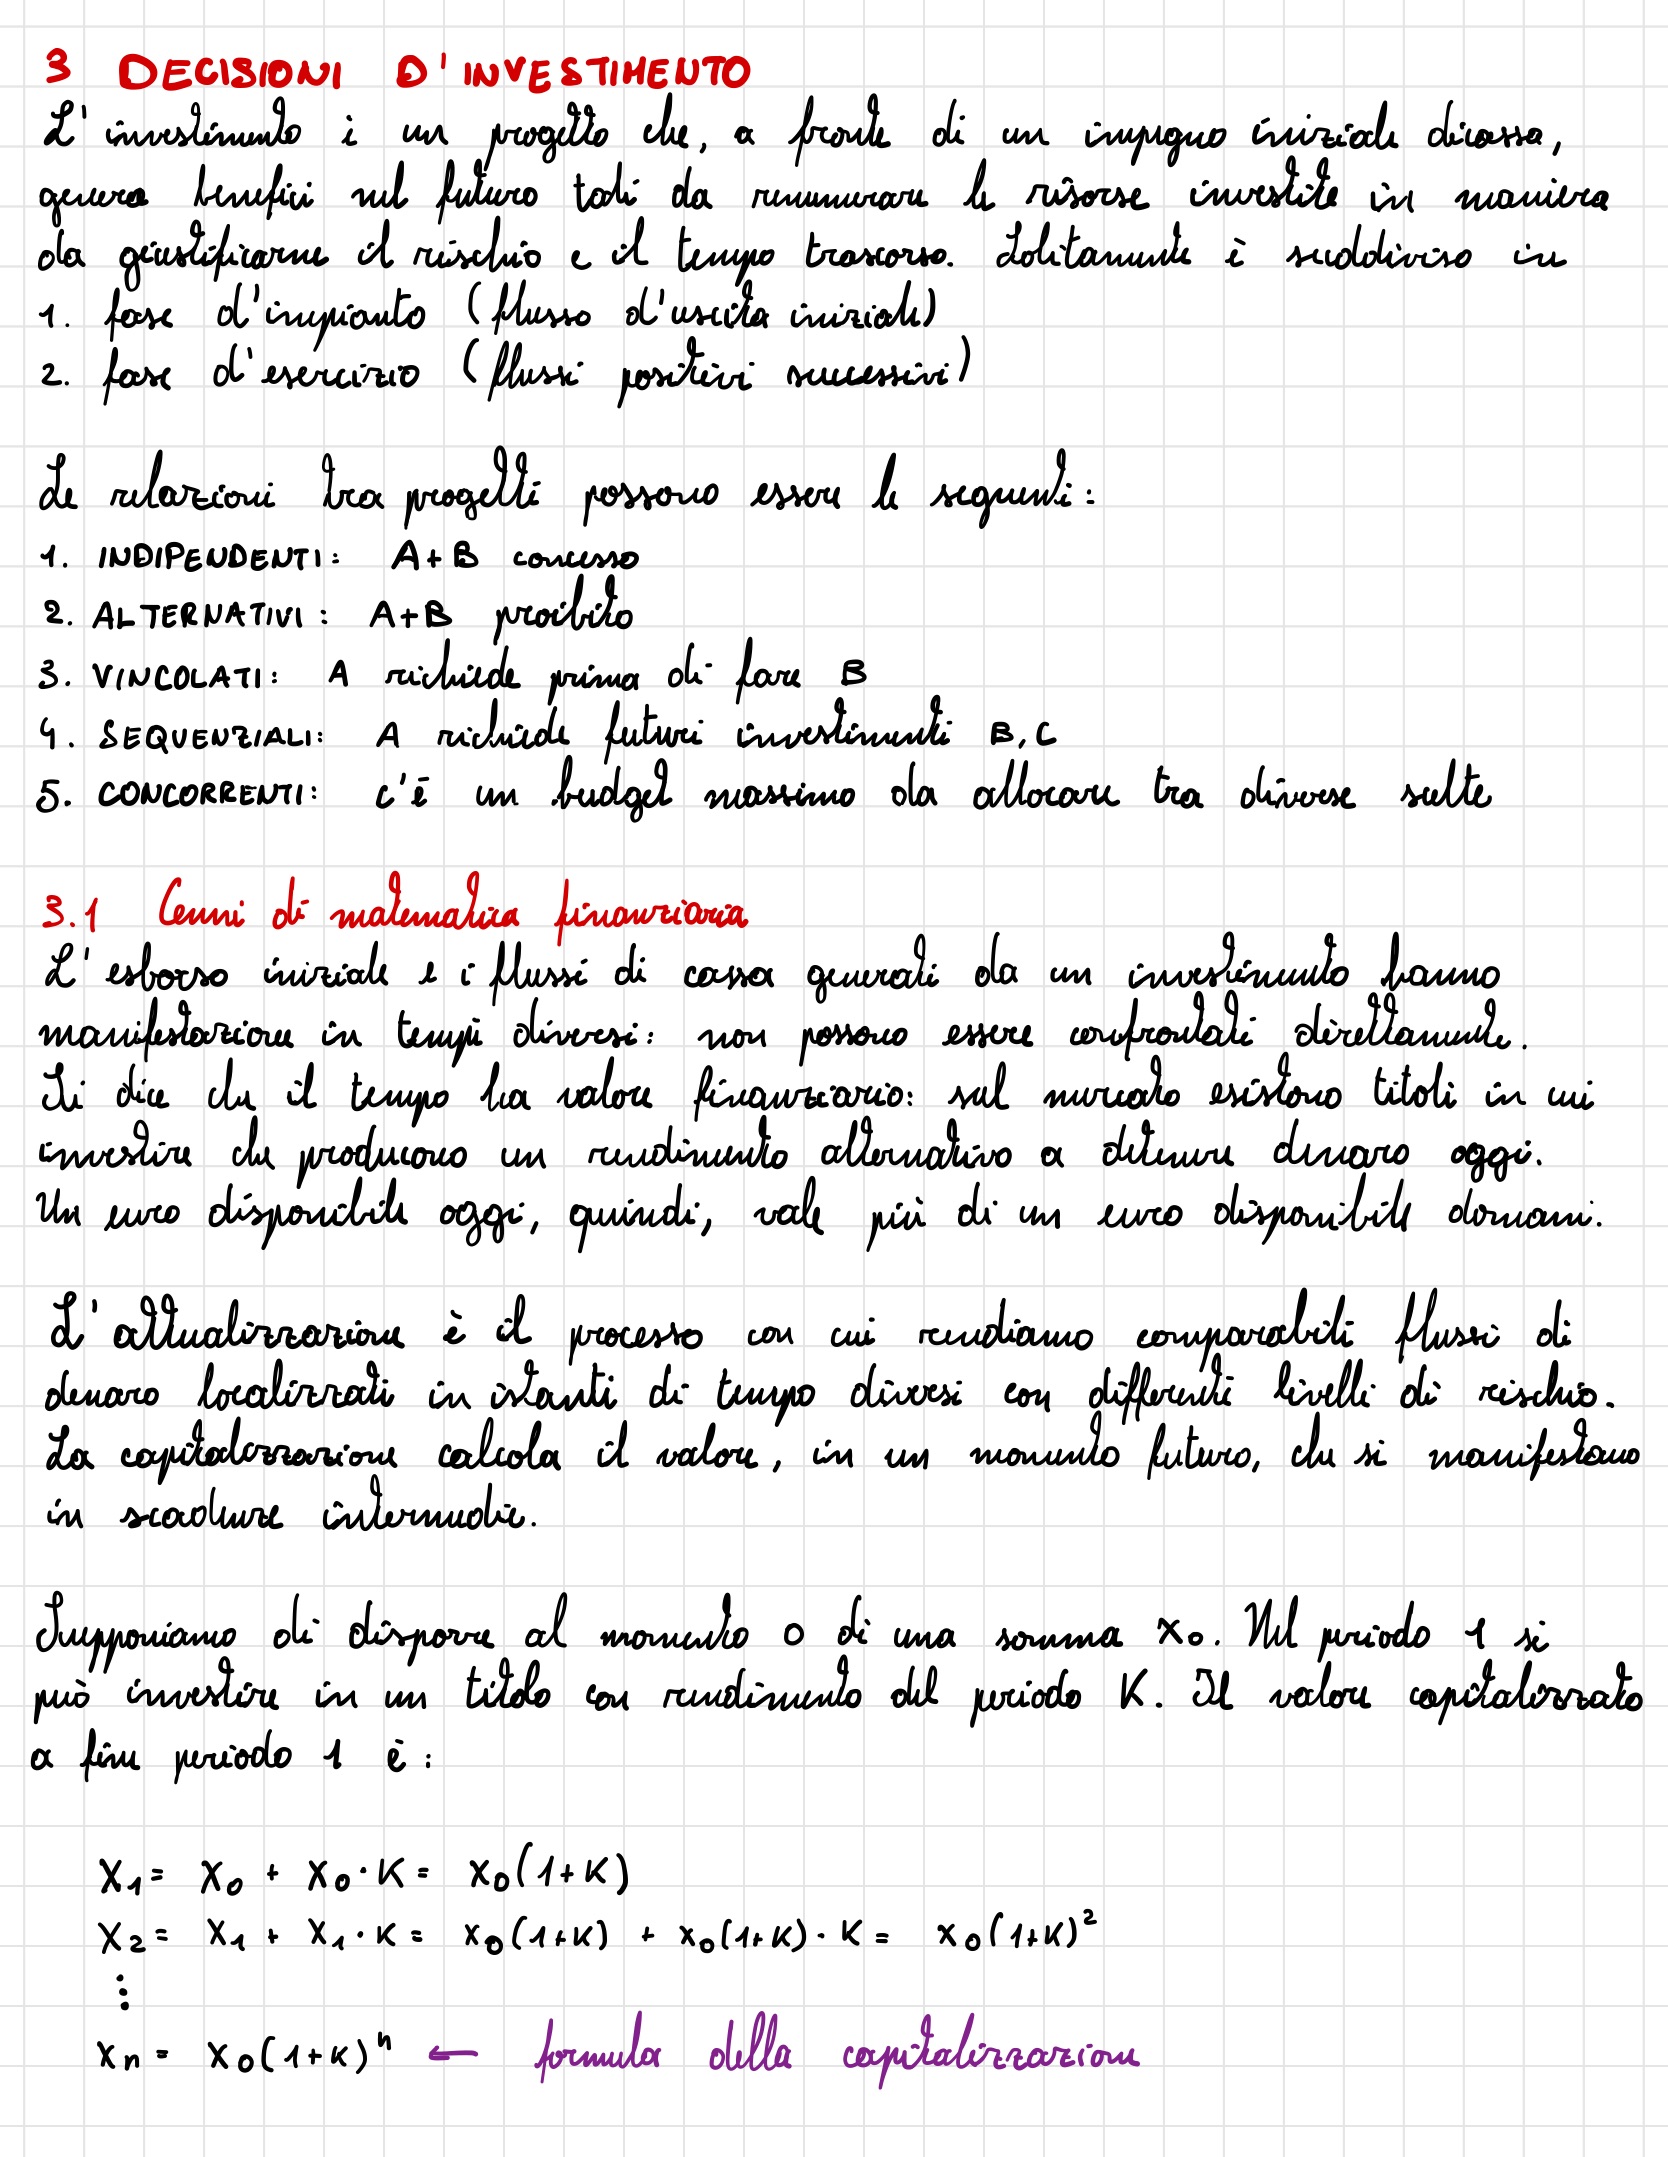 3 DECISIONI D'INVESTIMENTO
L'investimento è un progetto che, a fronte di un impegno iniziale di cassa,
genera benefici nel futuro tali da remunerare le risorse investite in maniera
da giustificarne il rischio e il tempo trascorso. Solitamente è suddiviso in
1. fase d'impianto (flusso d'uscita iniziale)
2. fase d'esercizio (flussi positivi successivi)
Le relazioni tra progetti possono essere le seguenti:
1. INDIPENDENTI: A+B concesso
2. ALTERNATIVI: A+B proibito
3. VINCOLATI: A richiede prima di fare B
4. SEQUENZIALI: A richiede futuri investimenti B, C
5. CONCORRENTI: c'è un budget massimo da allocare tra diverse scelte
3.1 Cenni di matematica finanziaria
L'esborso iniziale e i flussi di cassa generati da un investimento hanno
manifestazione in tempi diversi: non possono essere confrontati direttamente.
Si dice che il tempo ha valore finanziario: sul mercato esistono titoli in cui
investire che producono un rendimento alternativo a detenere denaro oggi.
Un euro disponibile oggi, quindi, vale più di un euro disponibile domani.
L'attualizzazione è il processo con cui rendiamo comparabili flussi di
denaro localizzati in istanti di tempo diversi con differenti livelli di rischio.
La capitalizzazione calcola il valore, in un momento futuro, che si manifestano
in scadenze intermedie.
Supponiamo di disporre al momento 0 di una somma x₀. Nel periodo 1 si
può investire in un titolo con rendimento del periodo K. Il valore capitalizzato
a fine periodo 1 è:
X₁ = X₀ + X₀·K = X₀(1+K)
X₂ = X₁ + X₁·K = X₀(1+K) + X₀(1+K)·K = X₀(1+K)²
⋮
Xn = X₀(1+K)ⁿ ← formula della capitalizzazione